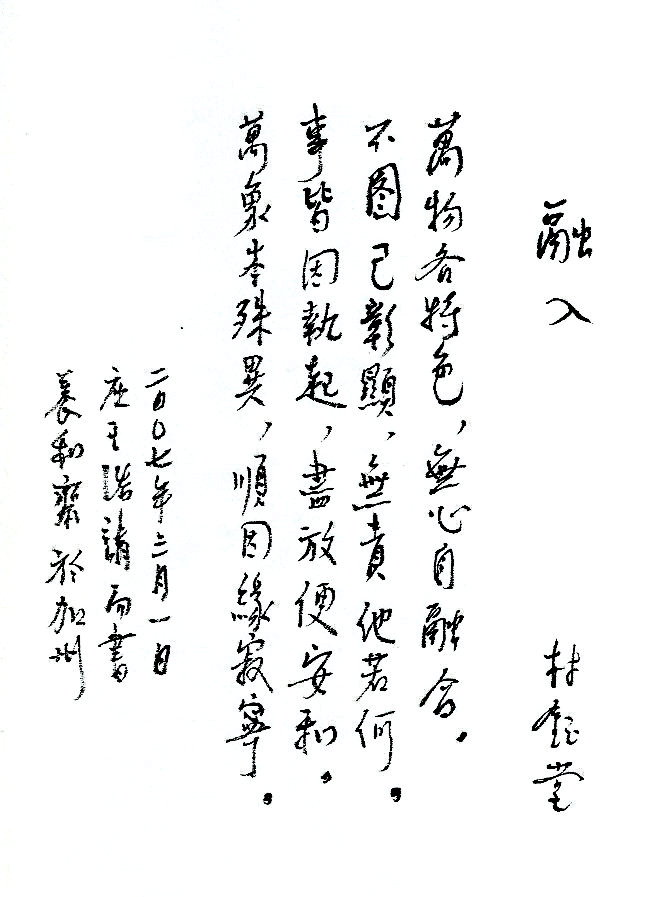 融入
林鈺堂
萬物各特色，無心自融會。
不圖己彰顯，無責他若何。
事皆因執起，盡放便安和。
萬象岑殊異，順因緣寂寧。
二〇〇七年三月一日
應王浩請而書
養和齋於加州